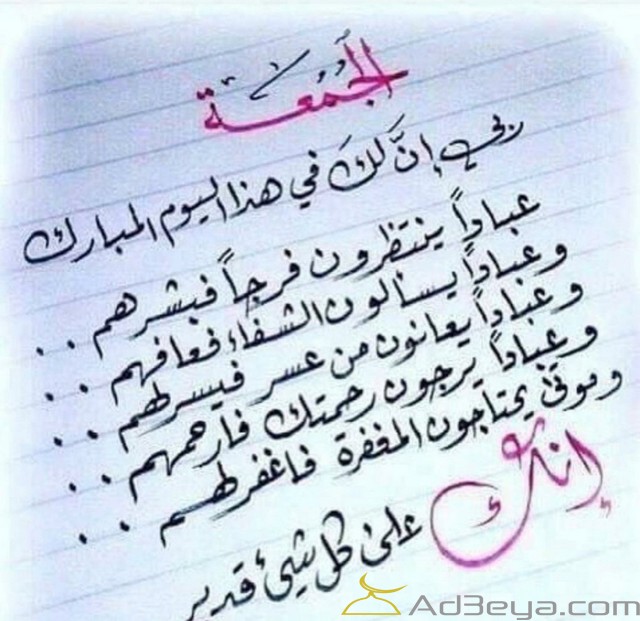 الجُمُعَة
ربي إنَّ لكَ في هذا اليوم المبارك
عباداً ينتظرون فرجاً فبشرهم . .
وعباداً يسألون الشفاء فعافهم . .
وعباداً يعانون من عسر فيسرلهم . .
وعباداً يرجون رحمتك فارحمهم . .
وموتى يحتاجون المغفرة فاغفرلهم . .
إنك على كل شيئ قدير
Ad3eya.com